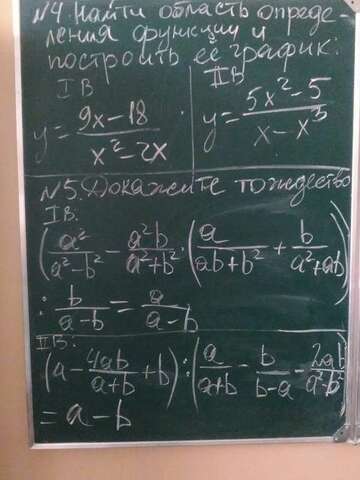 №4. Найти область опреде-
ления функции и
построить её график:
I В
y = (9x-18)/(x²-2x)
II В
y = (5x²-5)/(x-x³)
№5. Докажите тождество
I В.
(a²/(a²-b²) - a²b/(a²+b²) · (a/(ab+b²) + b/(a²+ab))
: b/(a-b) = a/(a-b)
II В:
(a - 4ab/(a+b) + b) : (a/(a+b) - b/(b-a) - 2ab/(a²-b²))
= a - b